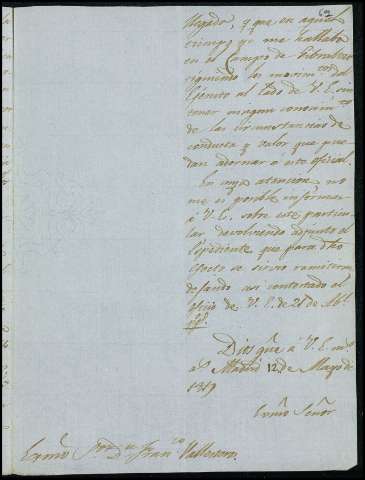 llegado, y que en aquel
tiempo yo me hallaba
en el Campo de Gibraltar
siguiendo los movim.tos del
Ejército al lado de V. E. sin
tener ningun conocim.to
de las circunstancias de
conducta y valor que pue
dan adornar a este oficial.
En cuya atencion no
me es posible informar
á V. E. sobre este particu-
lar devolviendo adjunto el
Espediente que para dho
efecto se sirvió remitirme
dejando asi contestado el
oficio de V. E. de 21 de
Dios gūe á V. E. m.s
a.s Madrid 12 de Mayo de
1819
Exmō Señor
Exmō Sor Dn Franco Vallesteros.